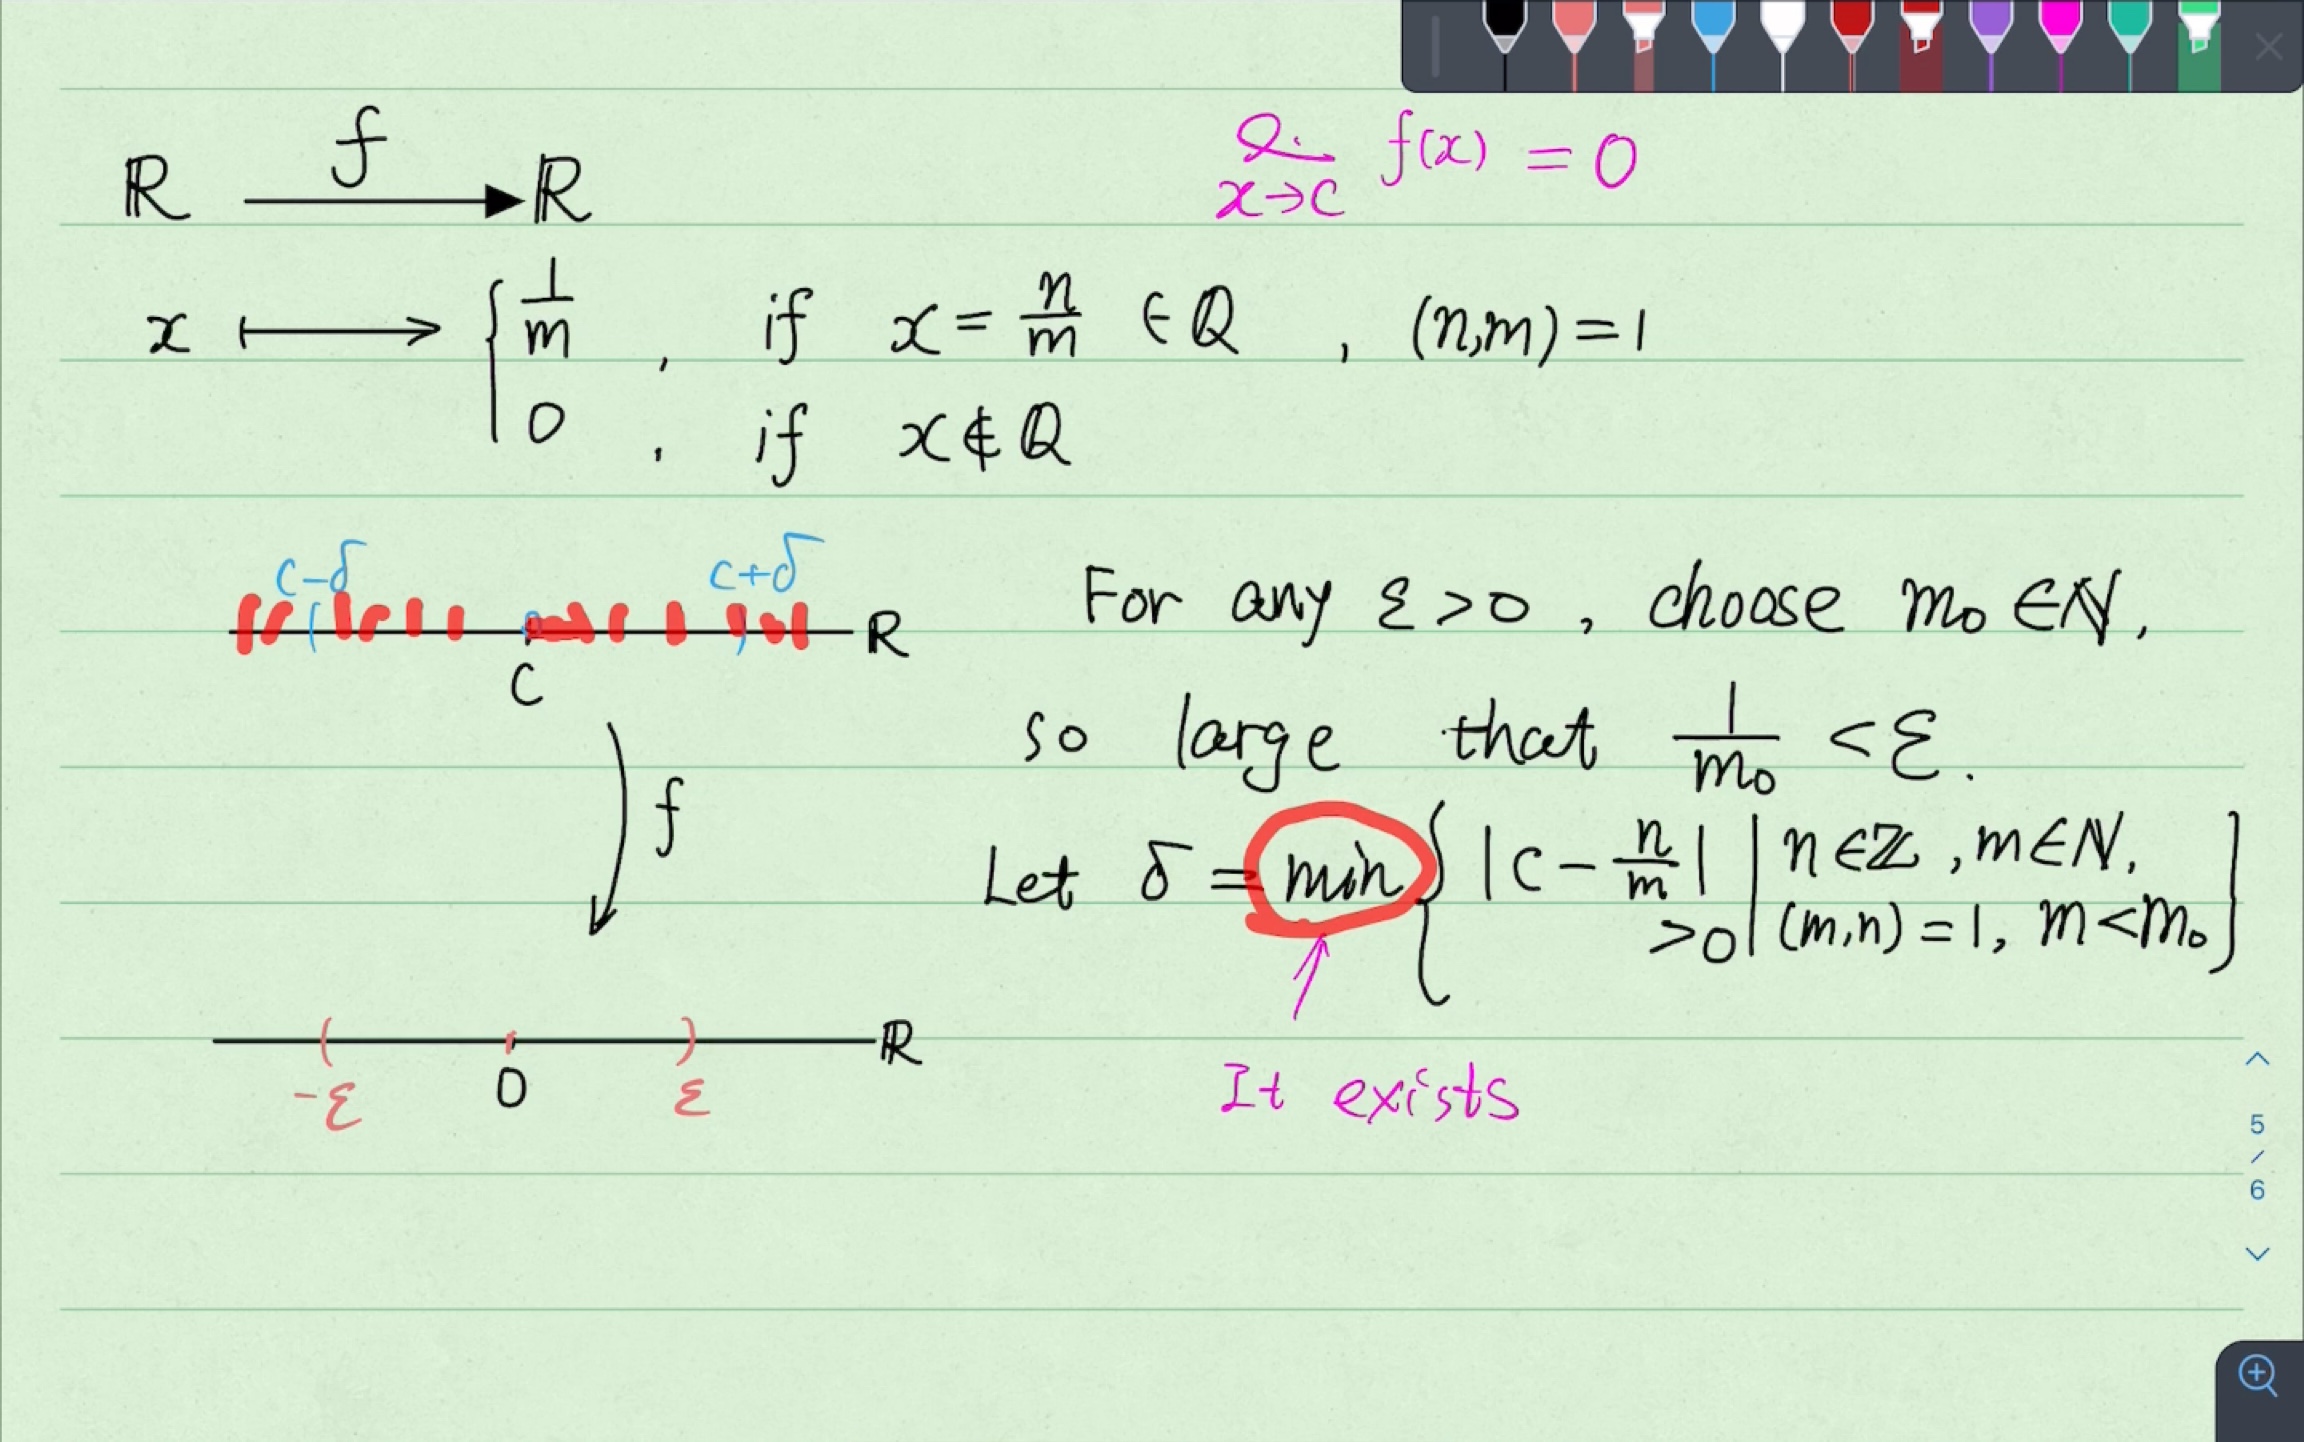 ℝ —f→ ℝ
lim x→c f(x) = 0
x ⟼ { 1/m , if x = n/m ∈ ℚ , (n,m) = 1
0 , if x ∉ ℚ
c-δ c+δ
c ℝ
For any ε > 0 , choose m₀ ∈ ℕ,
so large that 1/m₀ < ε.
f
Let δ = min { |c - n/m| > 0 | n ∈ ℤ, m ∈ ℕ, (m,n) = 1, m < m₀ }
-ε 0 ε ℝ
It exists
5
/
6